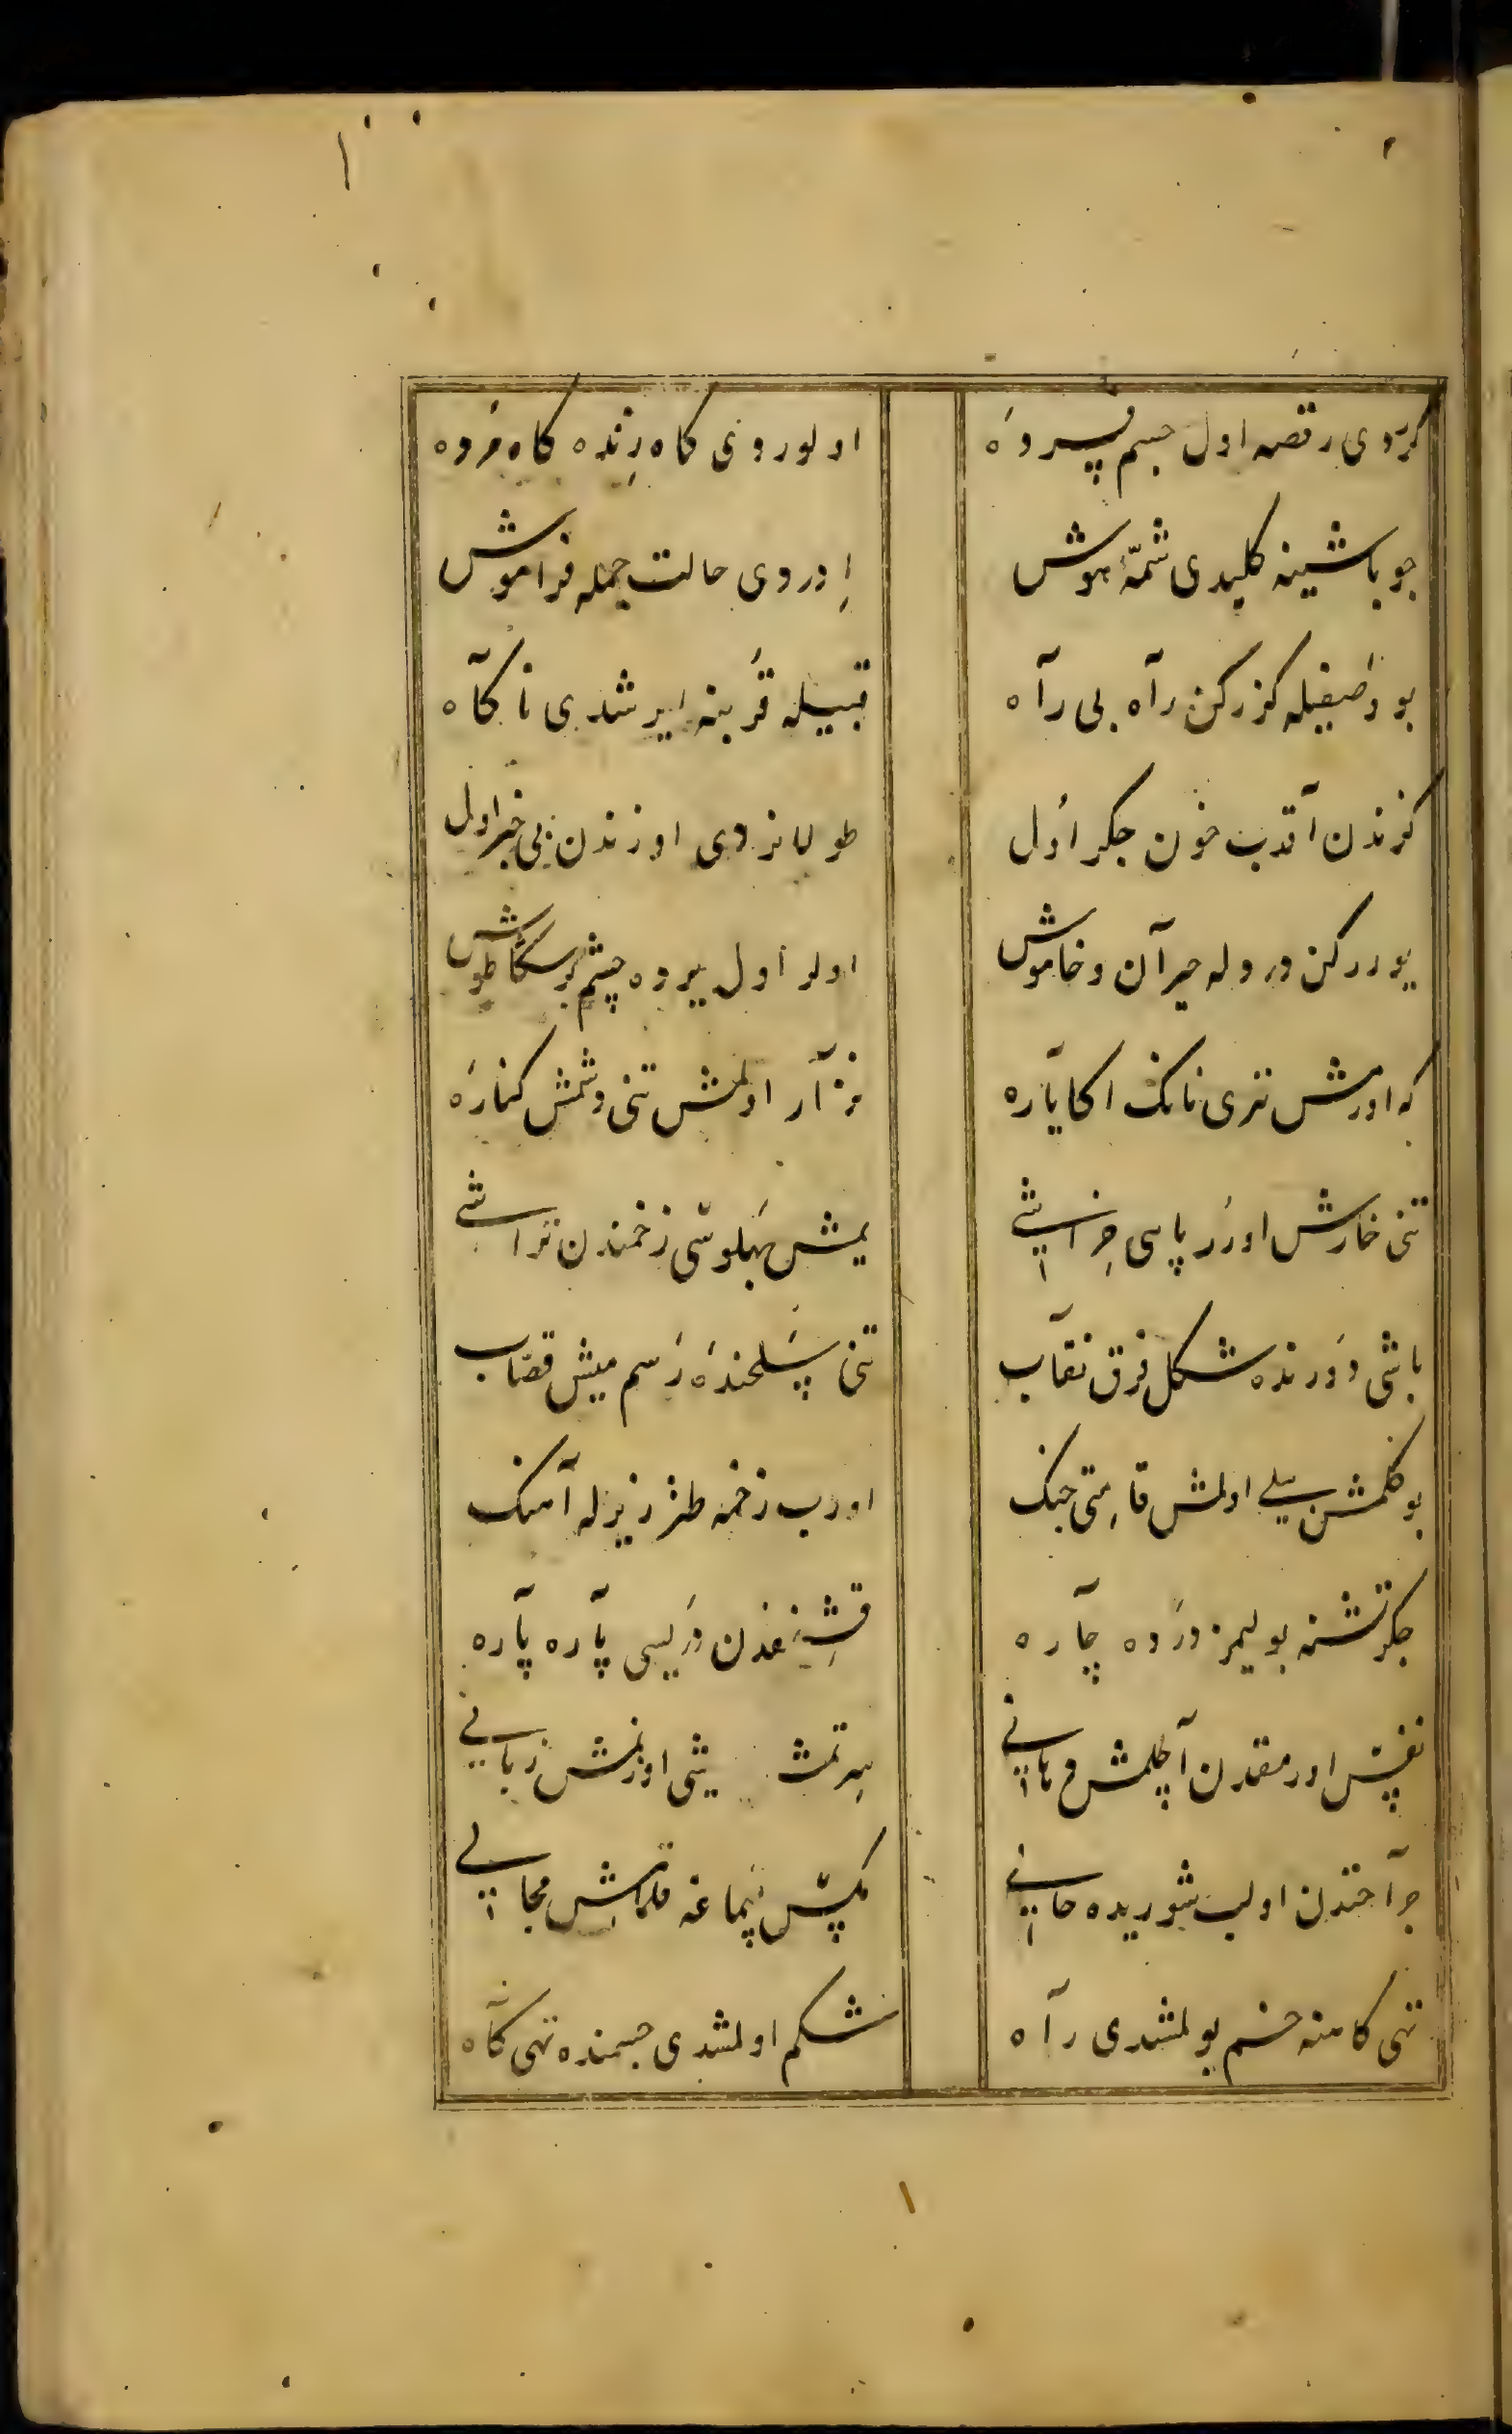 کرردی رقصه اول جسم پسرده
اولوردی کاه زنده کاه مرده
جو باشینه کلیدی شمّهٔ هوش
ایدردی حالت جمله فراموش
بو وصفیله کزرکن راه بی راه
قبیله قربنه ایرشدی ناکاه
کوزندن آقدب خون جکر اول
طولانردی اوزندن بی خبر اول
یوررکن درد‌له حیرآن و خاموش
اولر اول یرده چشم
که اورمش تنری نانک اکا یاره
مزار اولمش تنی دشمش کناره
تنی خارش اورر پاسی خراشی
یمش پهلوسی زخمندن تراشی
باشی دورنده شکل فرق نقاب
تنی پسلخنده رسم میش قصّاب
بوکلمش بیلی اولمش قامتی جنک
اورب زخمه طرز زیرله آهنک
جکر تشنه بولیمز درده چاره
دریسی پاره پاره
نفس اورمقدن آچلمش دهانی
یرتمش دیشی اوزنمش زبانی
جراحتدن اولب شوریده جانی
مکس یماغه قلمامش مجالی
تنی کامنه خسم بولمشدی راه
شکم اولمشدی جسمنده تهی کاه